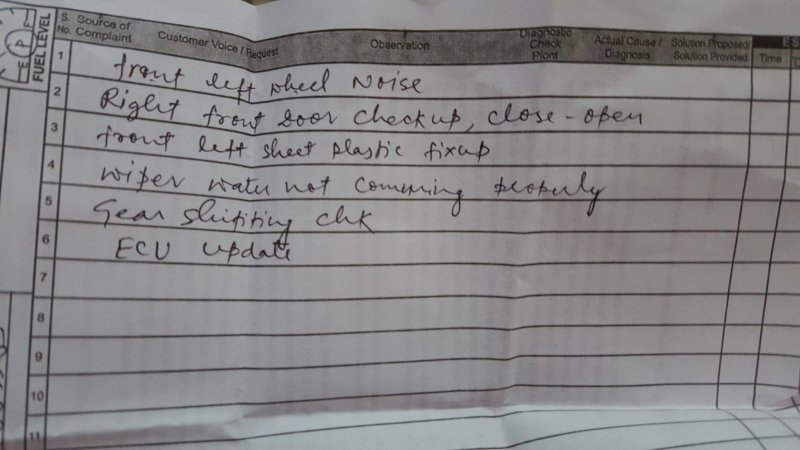 FUEL LEVEL
E F
S. No. Source of Complaint Customer Voice / Request Observation Diagnostic Check Piont Actual Cause / Diagnosis Solution Proposed/ Solution Provided Time
1 front left wheel Noise
2 Right front Door Check up, close - open
3 front left sheet plastic fixup
4 wiper water not comming properly
5 Gear shifiting chk
6 ECU update
7
8
9
10
11